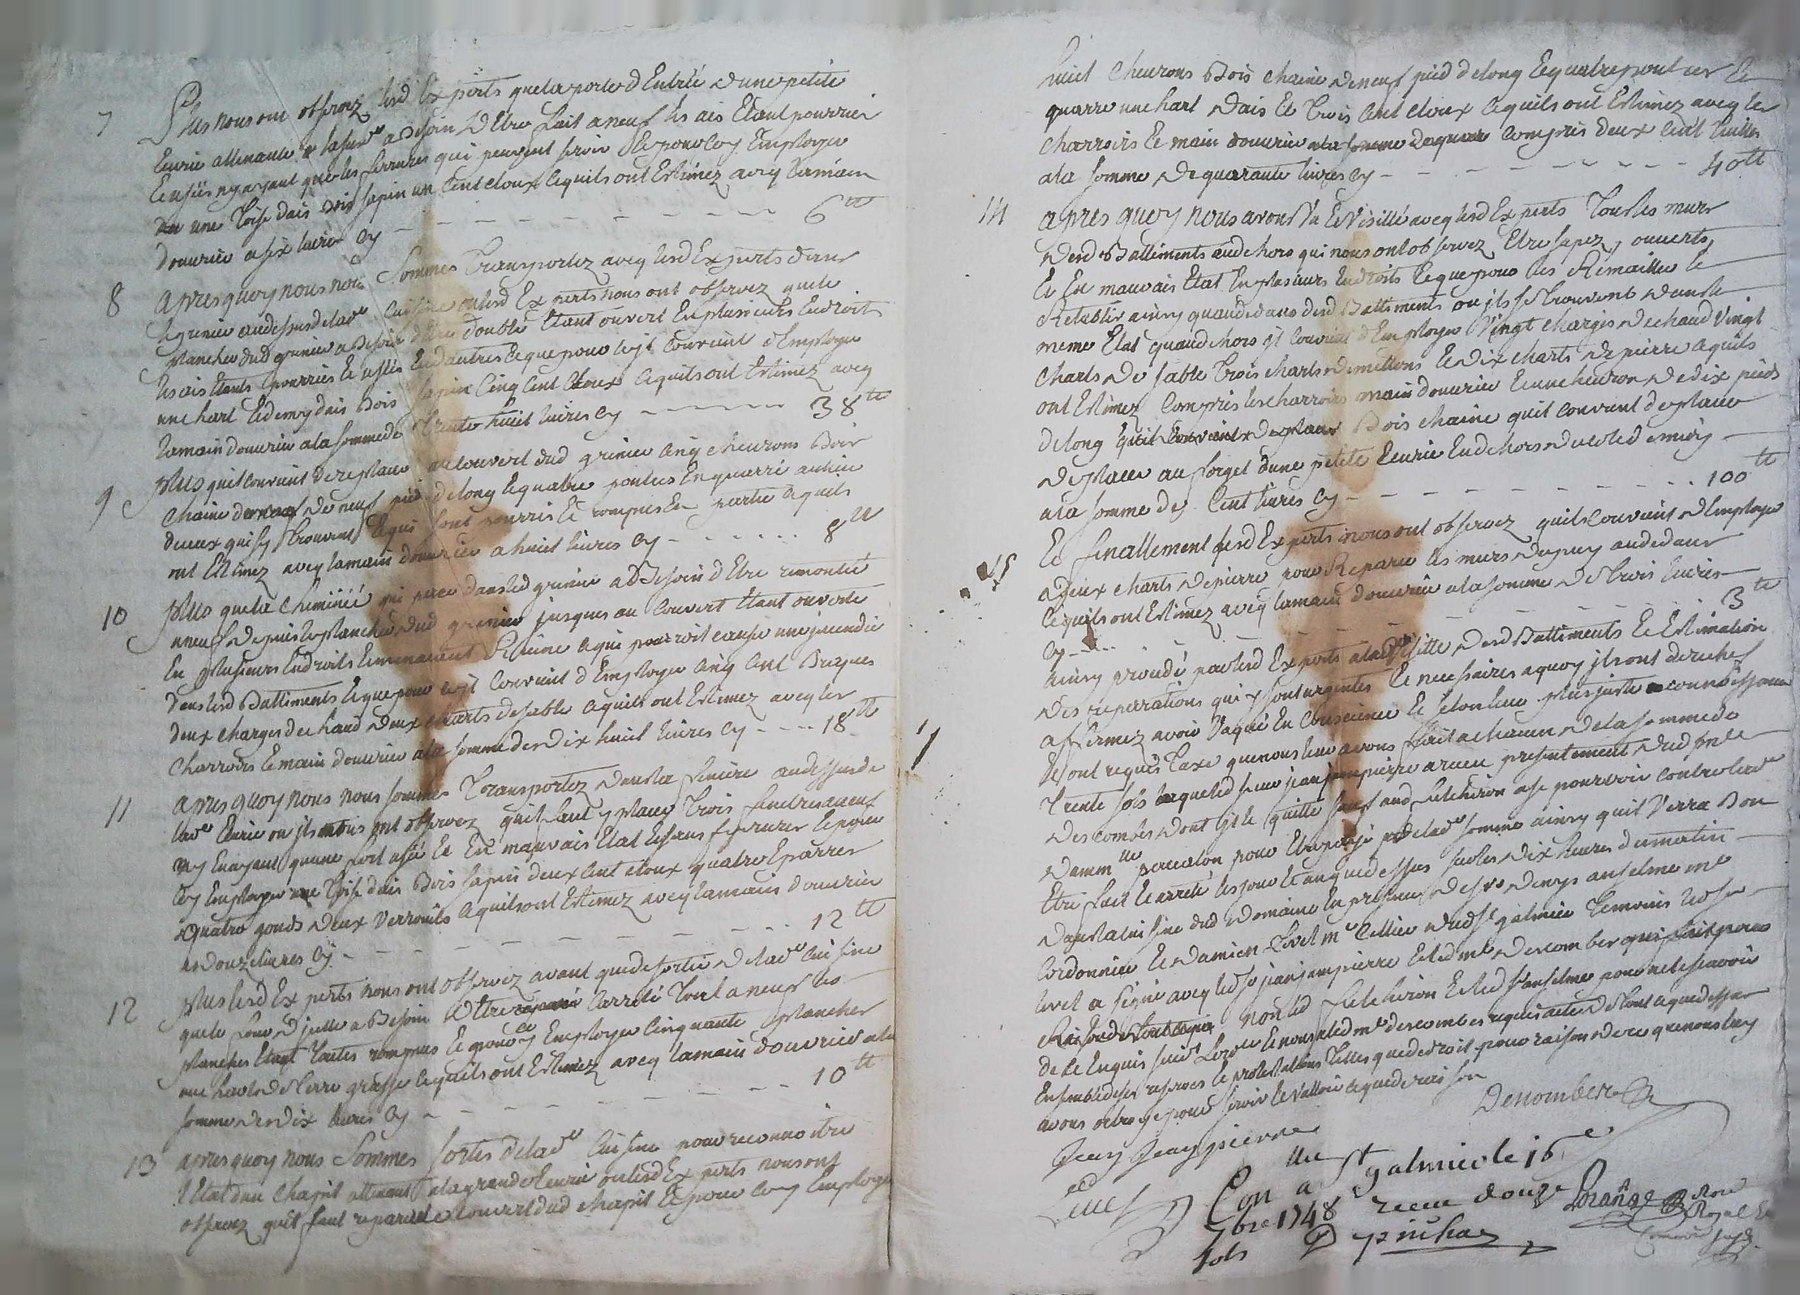 7 Plus nous ont observez lesd Experts que la porte d'Entrée d'une petite
Ecurie attenante a besoin d'Etre fait a neuf les ais Etant pourries
Et usés ny ayant que les ferrures qui peuvent servir Et pour ce y Employer
une Toise d'ais bois sapin un Cent cloux Ce quils ont Estimez avecq la main
douvrier a six livres Cy - - - 6ᵗᵗ
8 apres quoy nous nous sommes Transportez avecq lesd Experts dans
le grenier audessus de lade Cuisine ou lesd Experts nous ont observez que le
plancher dud grenier a Besoin d'Etre doublé Etant ouvert En plusieurs Endroits
les ais Etants pourries Et usées En dautres Ce que pour ce jl Convient d'Employer
une hart Et demy dais Bois sapin Cinq Cent Cloux Ce quils ont Estimez avecq
la main douvrier a la somme de Trente huit livres Cy - - - 38ᵗᵗ
9 plus quil convient de replacer au couvert dud grenier cinq cheurons Bois
chaine de neuf pied de long Et quatre pouces En quarré au lieu
de ceux qui sy trouvent Et qui sont pourris Et rompus En partie Ce quils
ont Estimez avecq la main douvrier a huit livres Cy - - - 8ᵗᵗ
10 plus que la cheminée qui perce dans led grenier a Besoin d'Etre remontée
a neuf depuis le plancher dud grenier jusques au Couvert Etant ouverte
En plusieurs Endroits Et menacent Ruine Ce qui pourroit causer une jncendie
dans lesd Battiments Et que pour ce jl Convient d'Employer cinq Cent Briques
deux charges de chaud deux charts de sable Ce quils ont Estimez avecq les
charrois Et main douvrier a la somme de dix huit livres Cy - - - 18ᵗᵗ
11 apres quoy nous nous sommes Transportez dans la feniere au dessus de
lade Ecurie ou jls nous ont observez quil faut y placer Trois fenêtres a neuf
ny En ayant quune fort usée Et En mauvais Etat Et sans ferrures Et pour
Cy Employer une Toise dais Bois sapin deux Cent cloux quatre Eparres
quatre gonds deux verrouils Ce quils ont Estimez avecq la main douvrier
a douze livres Cy - - - 12ᵗᵗ
12 plus lesd Experts nous ont observez avant que de sortir de lade Cuisine
que le four d'jcelle a Besoin d'Etre Carrelé Tout a neuf les
planches Etant Toutes rompues Et pour ce y Employer Cinquante plancher
une hart de Terre grasse Ce quils ont Estimez avecq la main douvrier a la
somme de dix livres Cy - - - 10ᵗᵗ
13 apres quoy nous sommes sortis de lade Cuisine pour reconnoitre
l'Etat d'un chapit attenant a la grande Ecurie ou lesd Experts nous ont
observez quil faut reparer le Couvert dud chapit Et pour Ce y Employer
huit cheurons Bois chaine de neuf pied de long Et quatre pouces En
quarre une hart dais Et Trois Cent cloux Ce quils ont Estimez avecq les
charrois Et main douvrier compris deux Cent Tuilles
a la somme de quarante livres Cy - - - 40ᵗᵗ
14 apres quoy nous avons vu Et visitté avecq lesd Experts Tous les murs
desd Battiments au dehors qui nous ont observez Etre sapez, ouverts
Et En mauvais Etat En plusieurs Endroits Et que pour les Remailler Et
Retablir ainsy quau dedans desd Battiments ou jls se trouvent dans le
meme Etat quau dehors jl Convient d'Employer Vingt charges de chaud Vingt
charts de sable Trois charts de mellons Et dix charts de pierre Ce quils
ont Estimez Compris les charrois main douvrier Et un cheuron de dix pieds
de long Bois chaine quil convient de placer
au forget d'une petite Ecurie En dehors du coté de midy
a la somme de Cent livres Cy - - - 100ᵗᵗ
15 Et finallement lesd Experts nous ont observez quil Convient d'Employer
deux charts de pierre pour Reparer les murs du puy au dedans
Ce quils ont Estimez avecq la main douvrier a la somme de Trois livres
Cy - - - 3ᵗᵗ
ainsy procédé par lesd Experts a la Visitte desd Battiments Et Estimation
des reparations qui y sont urgentes Et necessaires a quoy jls ont derechef
affirmez avoir Vaqué En Conscience Et selon leur plus juste connoissance
Et ont requis Taxe que nous leur avons fait a chacun de la somme de
Trente sols laquelle led sieur jean jeanpierre a receu presentement dud me
descombes dont jl le quitte sauf aud feletheiron a se pourvoir contre lad
Etre fait Et arreté les jour Et an que dessus sur les dix heures du matin
dans la Cuisine dud Domaine En presence de sr denys anselme me
Cordonnier Et damien Lovet me Cellier dud st galmier Temoins led sr
Lovet a signé avecq led sr jean jeanpierre Et led me descombes
non led feletheiron Et led sr anselme pour ne le scavoir
de Ce Enquis
Ensemble des reserves Et protestations Telles que de droit pour raison de ce que nous luy
avons octroyé pour servir Et valloir Ce que de raison
Jean Jeanpierre
Lovet
Con a St galmier le 16
7bre 1748 receu douze
sols